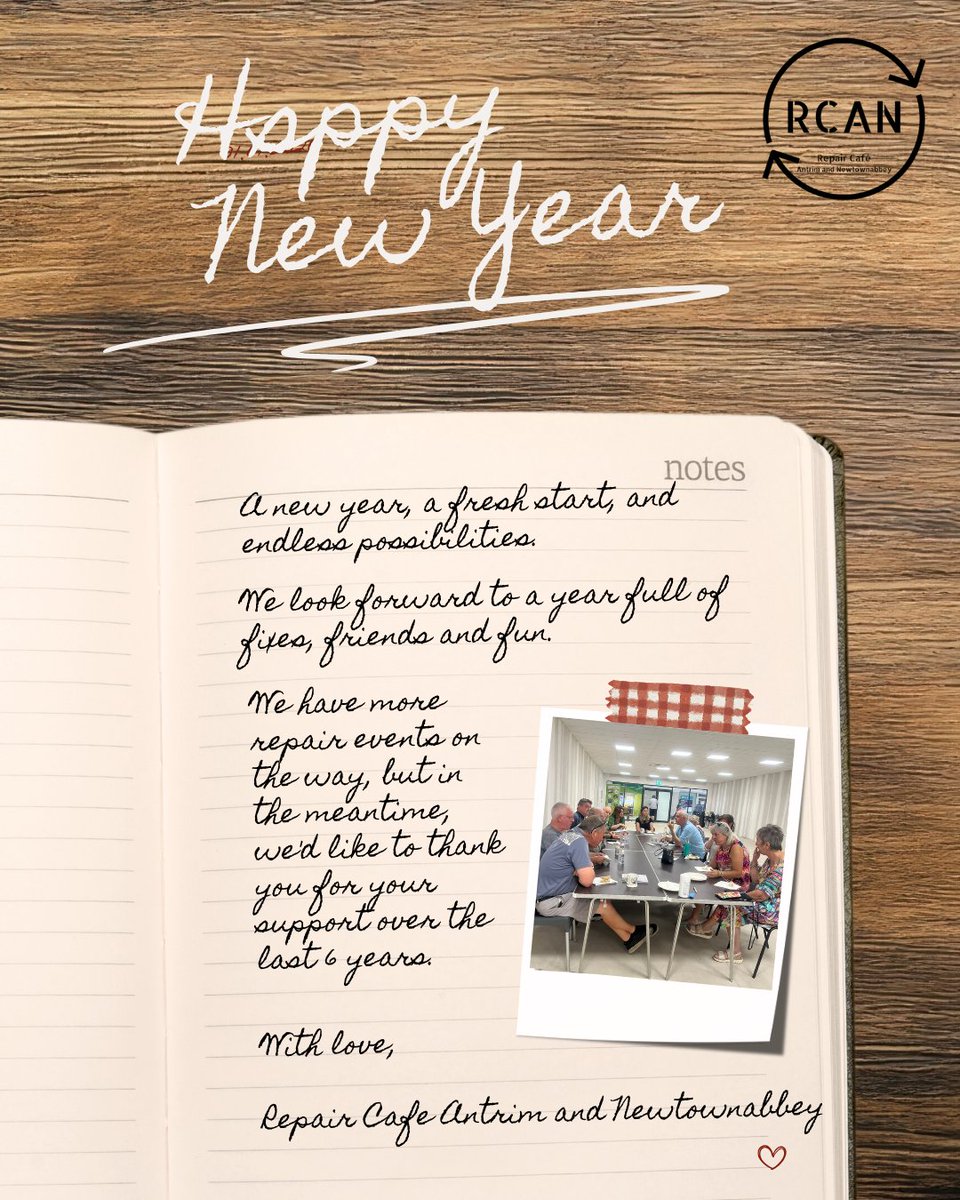 Happy
New Year
RCAN
Repair Café
Antrim and Newtownabbey
notes
A new year, a fresh start, and
endless possibilities.
We look forward to a year full of
fixes, friends and fun.
We have more
repair events on
the way, but in
the meantime,
we'd like to thank
you for your
support over the
last 6 years.
With love,
Repair Cafe Antrim and Newtownabbey